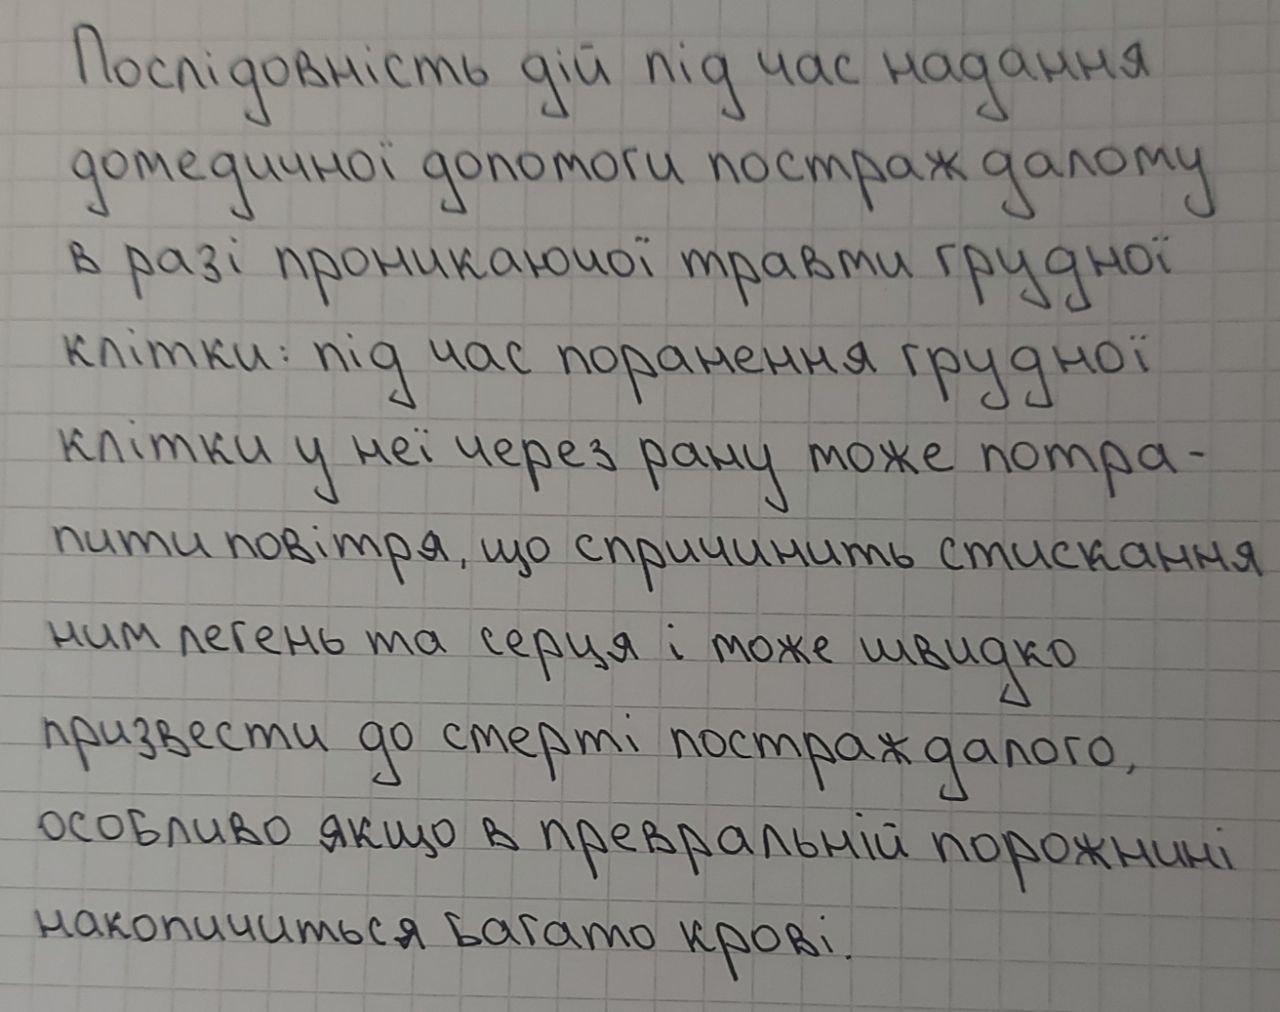 Послідовність дій під час надання
домедичної допомоги постраждалому
в разі проникаючої травми грудної
клітки: під час поранення грудної
клітки у неї через рану може потра-
пити повітря, що спричинить стискання
ним легень та серця і може швидко
призвести до смерті постраждалого,
особливо якщо в превральній порожнині
накопичиться багато крові.